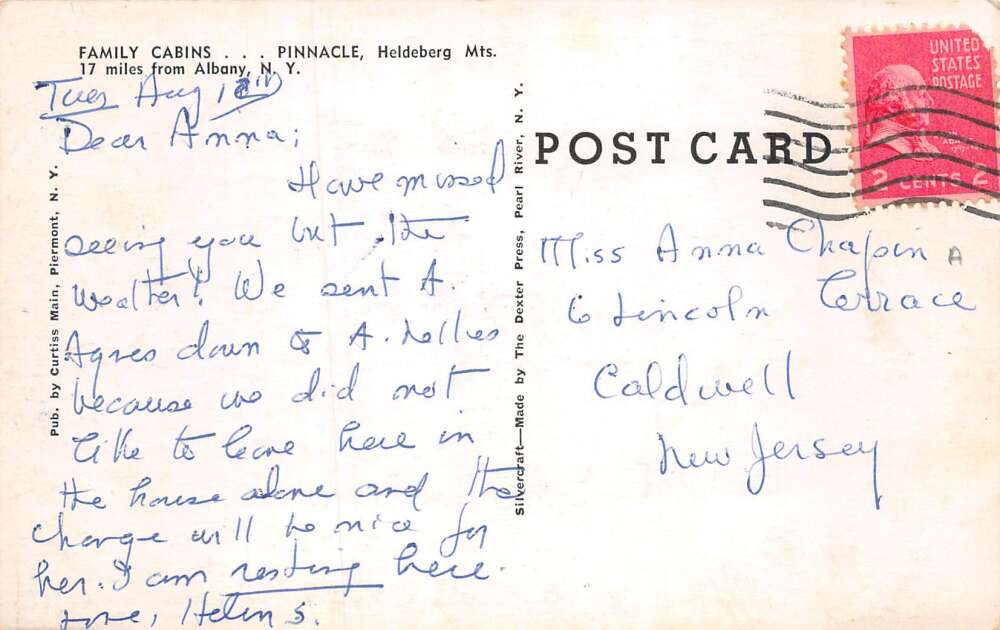 FAMILY CABINS . . . PINNACLE, Heldeberg Mts.
17 miles from Albany, N. Y.
Tues Aug
Dear Anna;
Have missed
seeing you but the
We sent A.
Agnes down to A. Nellies
because we did not
like to leave here in
the house alone and the
change will be nice for
her. I am resting here.
Love, Helen S.
Pub. by Curtiss Main, Piermont, N. Y.
Silvercraft—Made by The Dexter Press, Pearl River, N. Y.
POST CARD
UNITED
STATES
POSTAGE
2 CENTS 2
Miss Anna Chapin
6 Lincoln Terrace
Caldwell
New Jersey
A